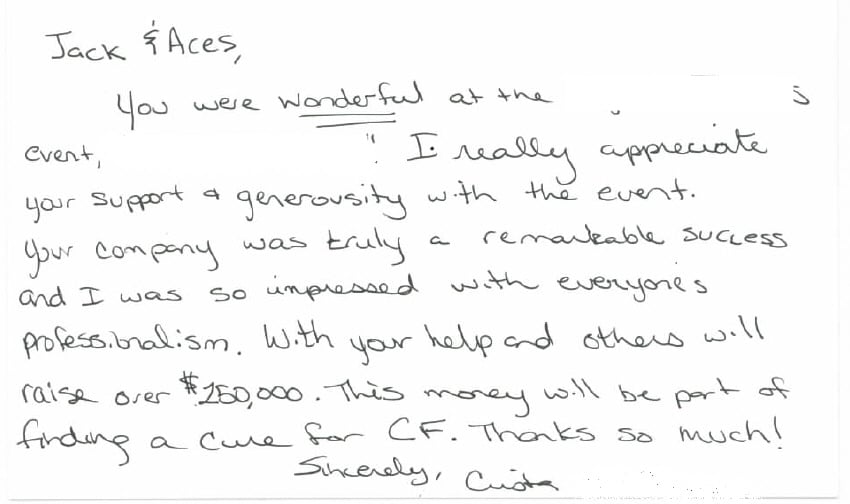 Jack & Aces,
You were wonderful at the
event, " I really appreciate
your support & generousity with the event.
Your company was truly a remarkable success
and I was so impressed with everyone's
professionalism. With your help and others will
raise over $250,000. This money will be part of
finding a cure for CF. Thanks so much!
Sincerely,